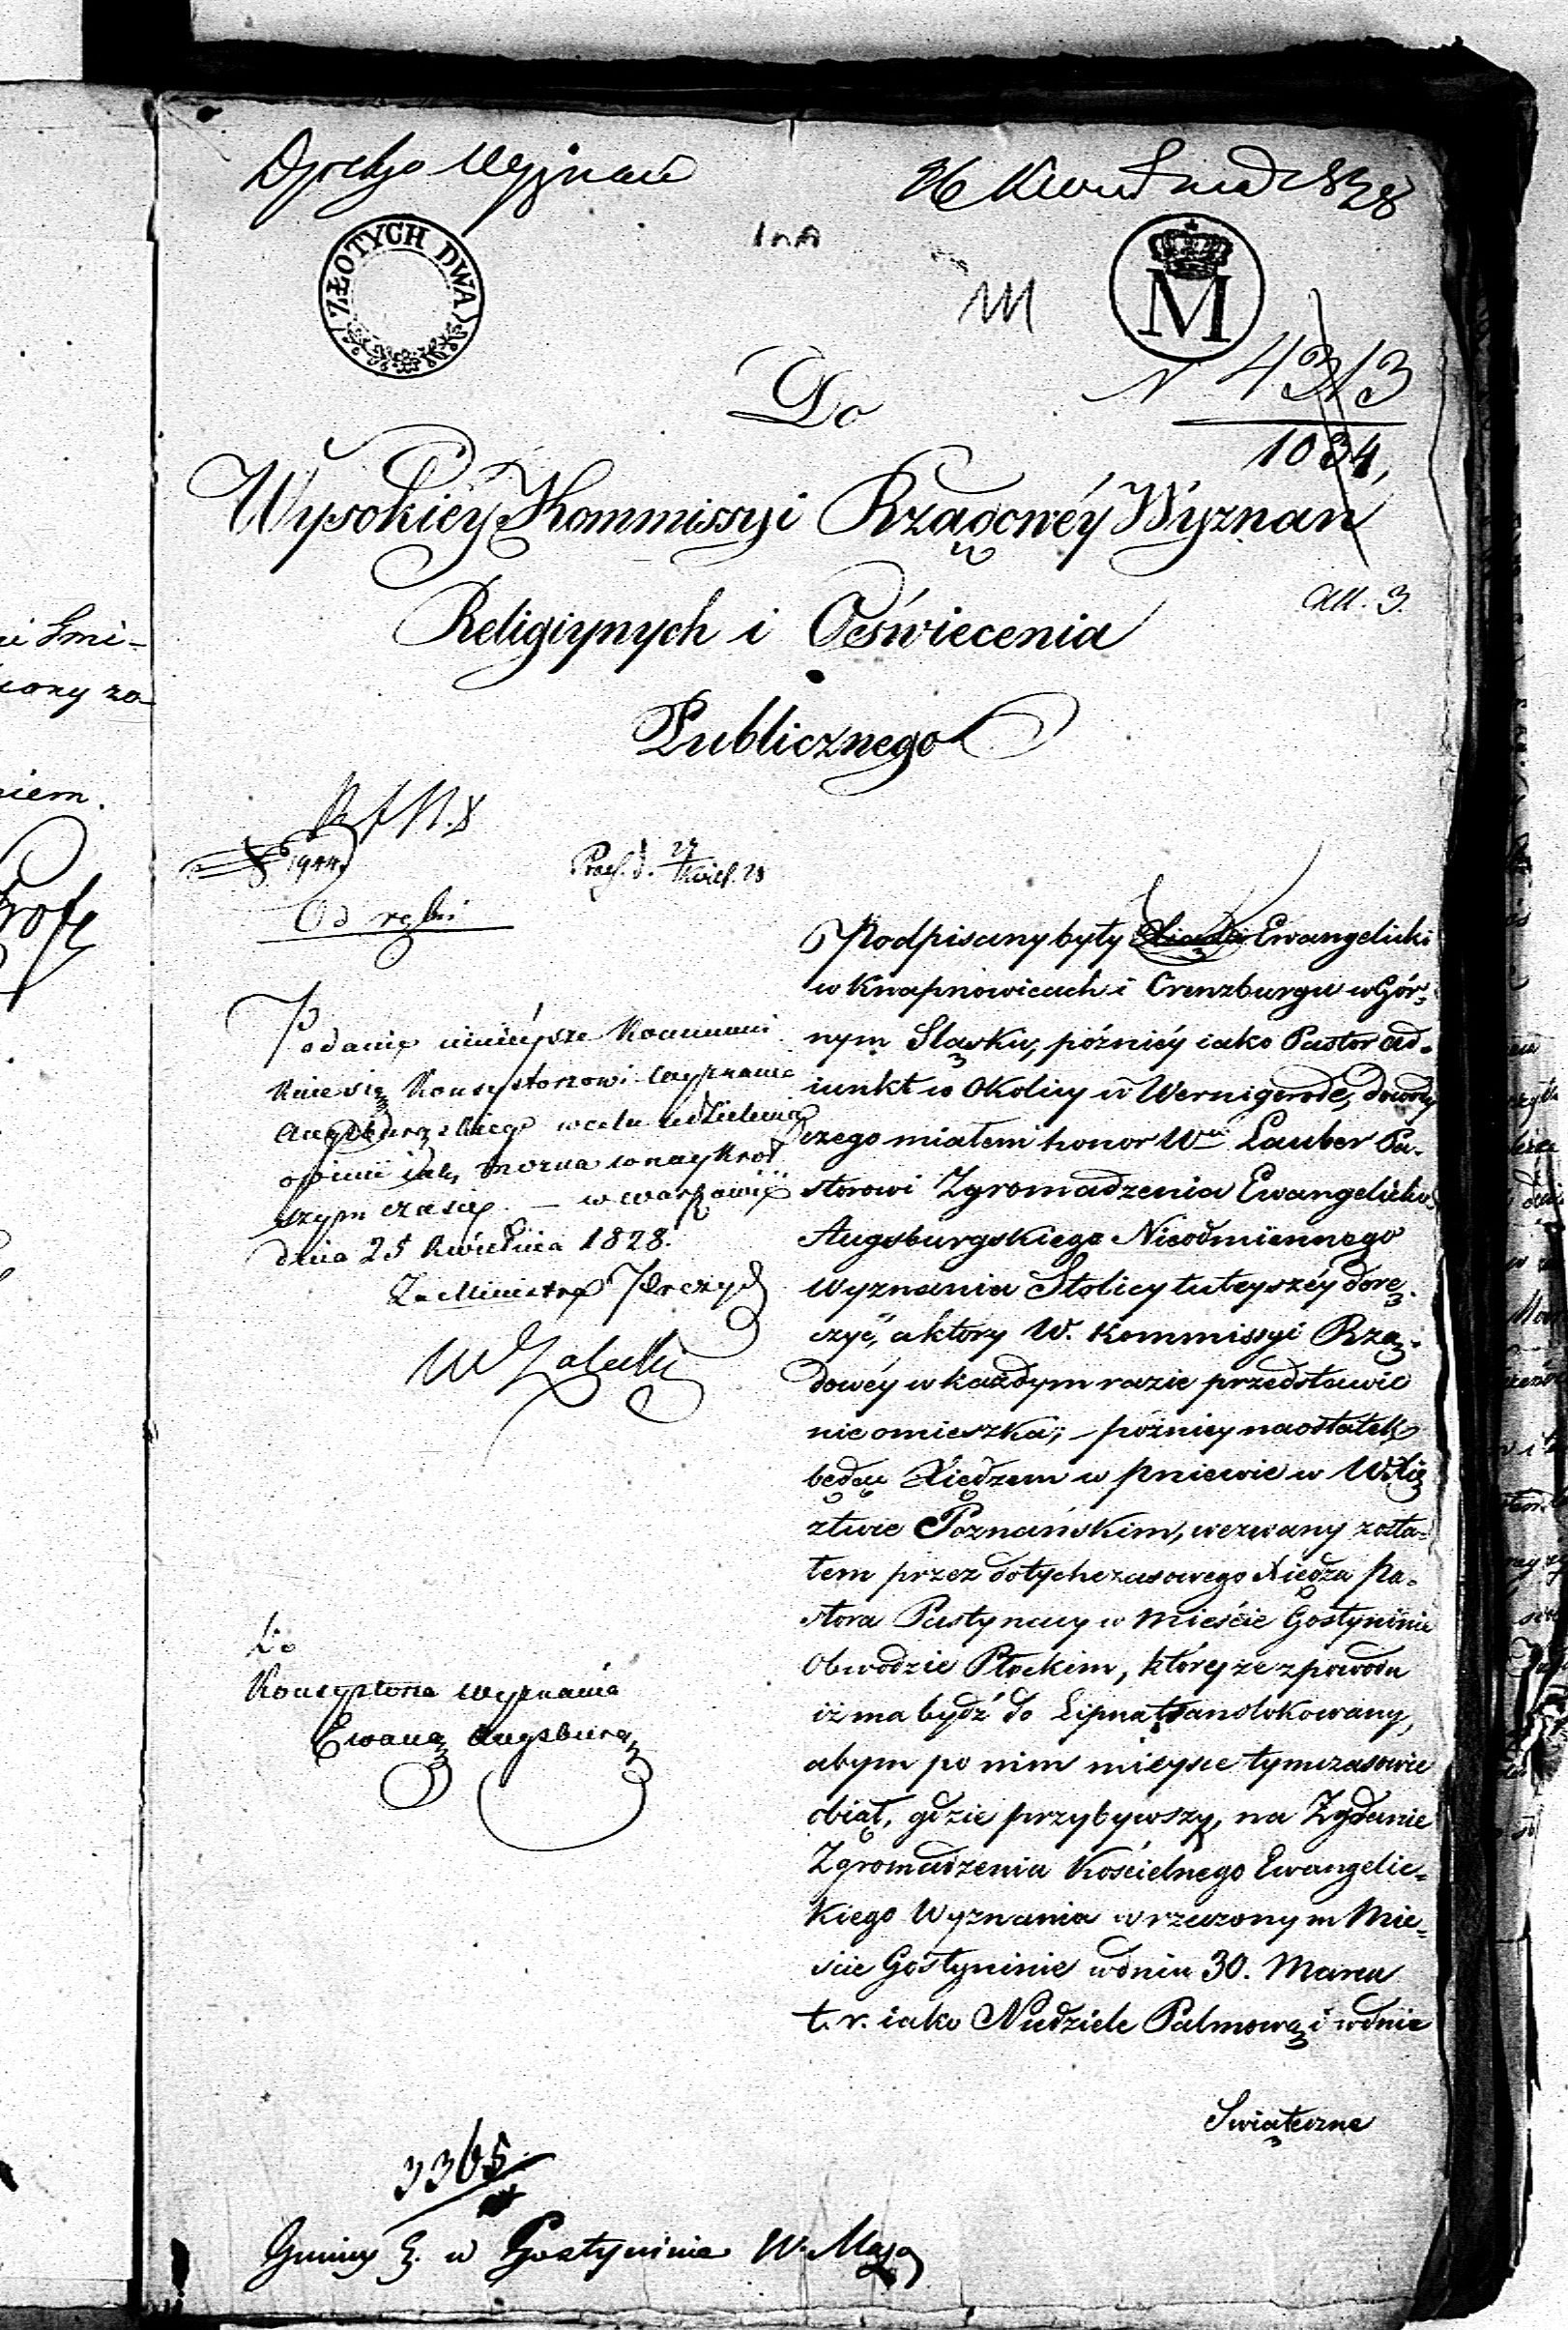 26 Kwietnia 1828
ZŁOTYCH DWA
M
M
N 4313
1034,
Do
Wysokiéy Kommissyi Rządowéy Wyznań
Religiynych i Oświecenia
All. 3.
Publicznego
1944
Od ręki
Podanie ninieysze Kommuni
kuie się Konsystorzowi Wyznania
Augsburgskiego w celu udzielenia
opinii iak można w naykrót
szym czasie. — w Warszawie
dnia 25 Kwietnia 1828.
Za Ministra Prezyd
Do
Konsystorza Wyznania
Ewang Augsburg
Podpisany były Ewangelicki
w Knapnowicach i Crenzburgu w Gór-
nym Sląsku, późniéy iako Pastor Ad-
iunkt w Okolicy w Wernigerode, dowody
czego miałem honor Wmu Lauber Pa-
storowi Zgromadzenia Ewangelicko
Augsburgskiego Nieodmiennego
Wyznania Stolicy tuteyszéy dorę-
czyć, a który W. Kommissyi Rzą-
dowéy w każdym razie przedstawić
nie omieszka; – późniey naostatek
będąc Xiędzem w Pniewie w W. Xię
ztwie Poznańskim, wezwany zosta-
łem przez dotychczasowego Xiędza Pa-
stora Pastynacy w Mieście Gostyninie
Obwodzie Płockim, któryże z powodu
iż ma bydź do Lipna translokowany,
abym po nim mieysce tymczasowie
obiął, gdzie przybywszy, na Żądanie
Zgromadzenia Kościelnego Ewangelic-
kiego Wyznania w rzeczonym Mie-
ście Gostyninie w dniu 30. Marca
t. r. iako Niedziele Palmową i w dnie
Swiąteczne
3365
Gminy E. w Gostyninie W. Maz